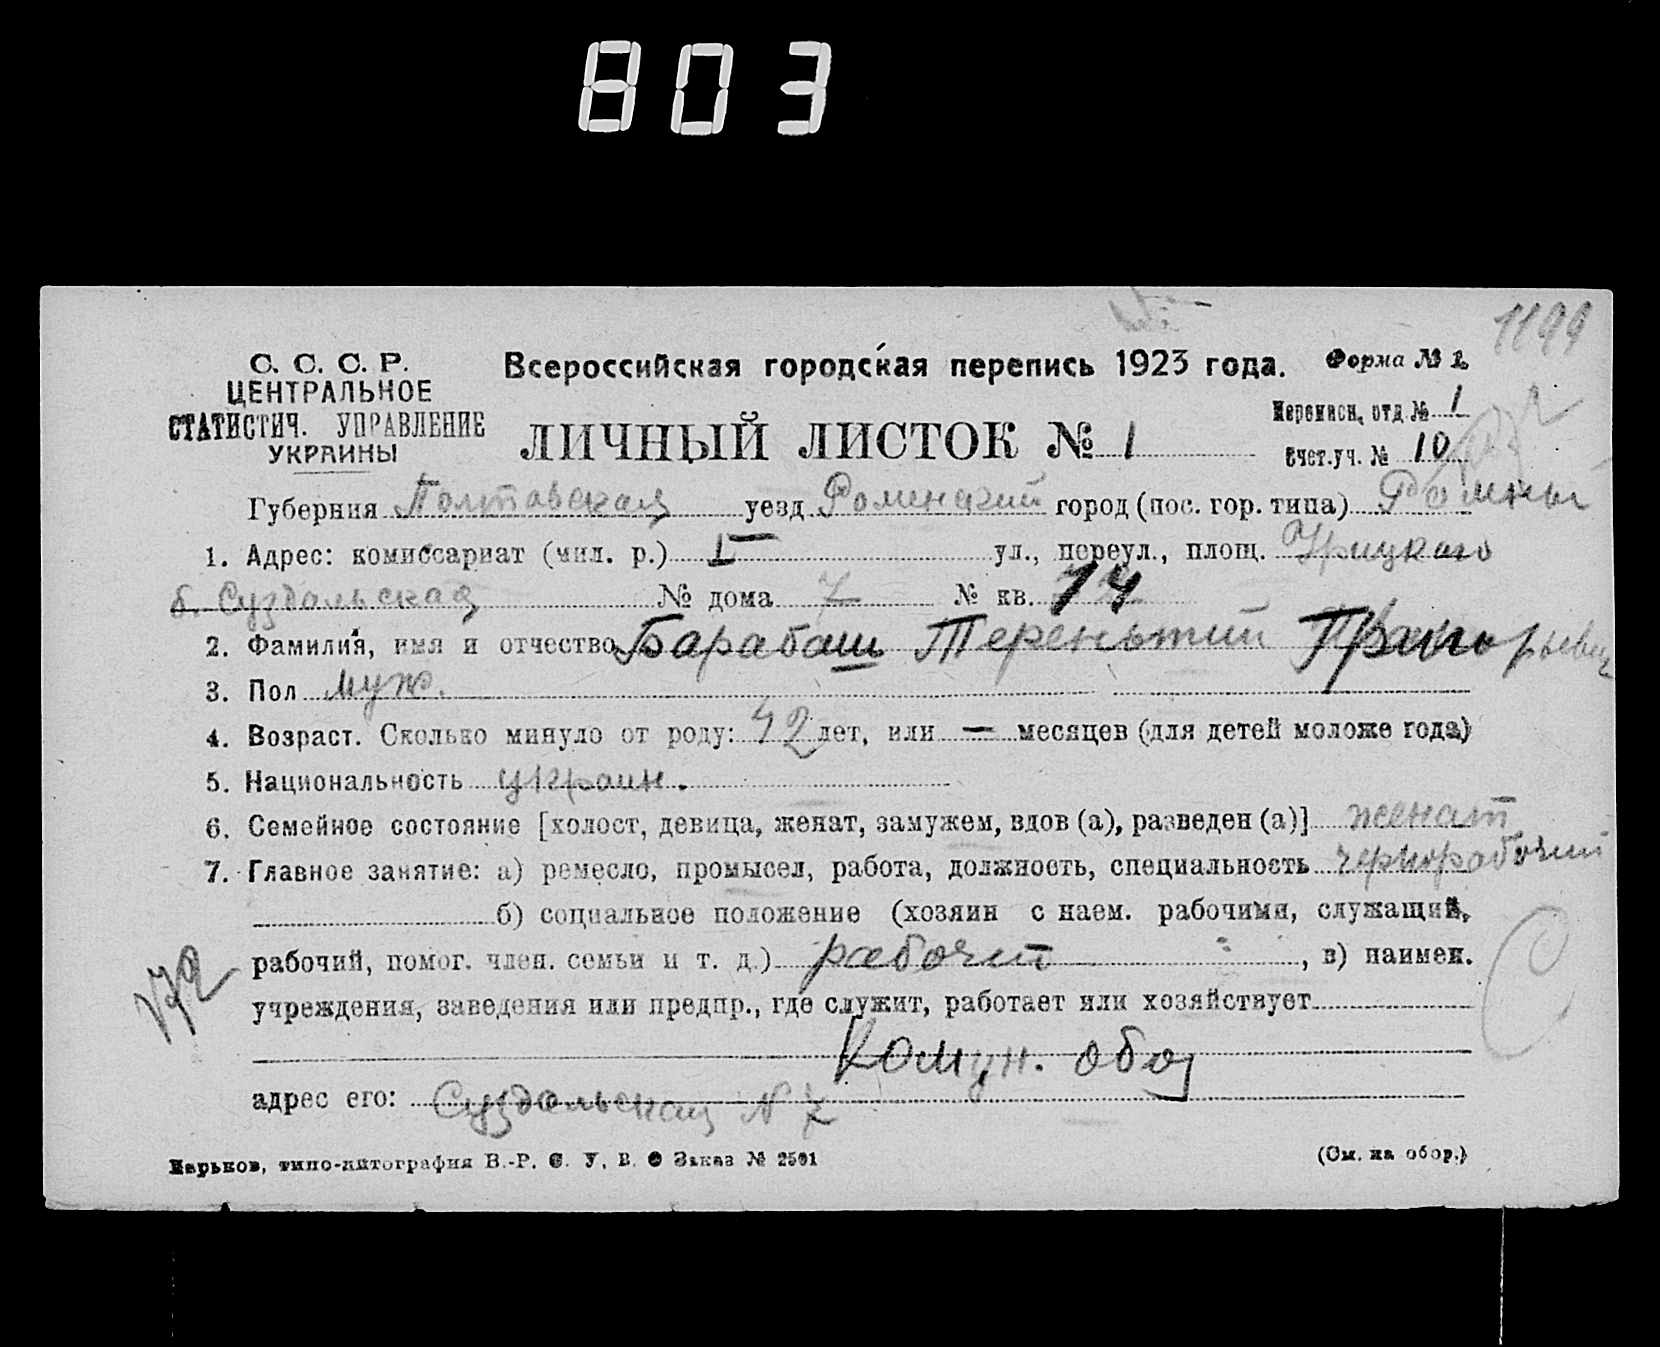 803
1199
С. С. С. Р.
ЦЕНТРАЛЬНОЕ
СТАТИСТИЧ. УПРАВЛЕНИЕ
УКРАИНЫ
Всероссийская городская перепись 1923 года.
Форма № 1.
ЛИЧНЫЙ ЛИСТОК № 1
Переписн. отд. № 1
Счет. уч. № 10
Губерния Полтавская уезд Роменский город (пос. гор. типа) Ромны
1. Адрес: комиссариат (мил. р.) I ул., переул., площ. Урицкого
б. Суздальская № дома 7 № кв. 14
2. Фамилия, имя и отчество Барабаш Терентий
3. Пол муж.
4. Возраст. Сколько минуло от роду: 42 лет, или — месяцев (для детей моложе года)
5. Национальность украин.
6. Семейное состояние [холост, девица, женат, замужем, вдов (а), разведен (а)] женат
7. Главное занятие: а) ремесло, промысел, работа, должность, специальность чернорабочий
б) социальное положение (хозяин с наем. рабочими, служащий,
рабочий, помог. член. семьи и т. д.) рабочий, в) наимен.
учреждения, заведения или предпр., где служит, работает или хозяйствует
Комун. обоз
адрес его: Суздальская N 7
172
Харьков, типо-литография В.-Р. С. У. В. О Заказ № 2501
(См. на обор.)